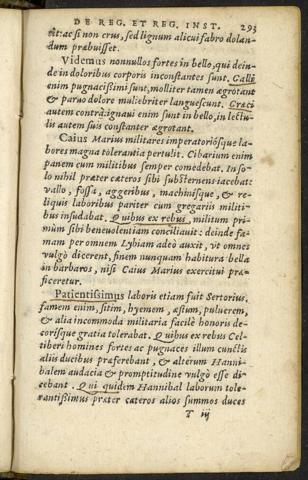 DE REG. ET REG. INST. 293
rit: ac si non crus, sed lignum alicui fabro dolan-
dum præbuisset.
Videmus nonnullos fortes in bello, qui dein-
de in doloribus corporis inconstantes sunt. Galli
enim pugnacissimi sunt, molliter tamen ægrotant
& paruo dolore muliebriter languescunt. Græci
autem contrà: ignaui enim sunt in bello, in lectu-
lis autem suis constanter ægrotant.
Caius Marius militares imperatoriósque la-
bores magna tolerantia pertulit. Cibarium enim
panem cum militibus semper comedebat. In so-
lo nihil præter cæteros sibi substernens iacebat:
vallo, fossa, aggeribus, machinisque, & re-
liquis laboribus pariter cum gregariis militi-
bus insudabat. Quibus ex rebus, militum pri-
mùm sibi beneuolentiam conciliauit: deinde fa-
mam per omnem Lybiam adeò auxit, vt omnes
vulgò dicerent, finem nunquam habitura bella
in barbaros, nisi Caius Marius exercitui præ-
ficeretur.
Patientissimus laboris etiam fuit Sertorius,
famem enim, sitim, hyemem, æstum, puluerem,
& alia incommoda militaria facilè honoris de-
corísque gratia tolerabat. Quibus ex rebus Cel-
tiberi homines fortes ac pugnaces illum cunctis
aliis ducibus præferebant, & alterum Hanni-
balem audacia & promptitudine vulgò esse di-
cebant. Qui quidem Hannibal laborum tole-
rantissimus præter cæteros alios summos duces
T iij